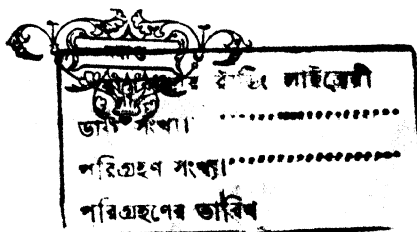 রীডিং লাইব্রেরী
ডাক সংখ্যা
পরিগ্রহণ সংখ্যা
পরিগ্রহণের তারিখ